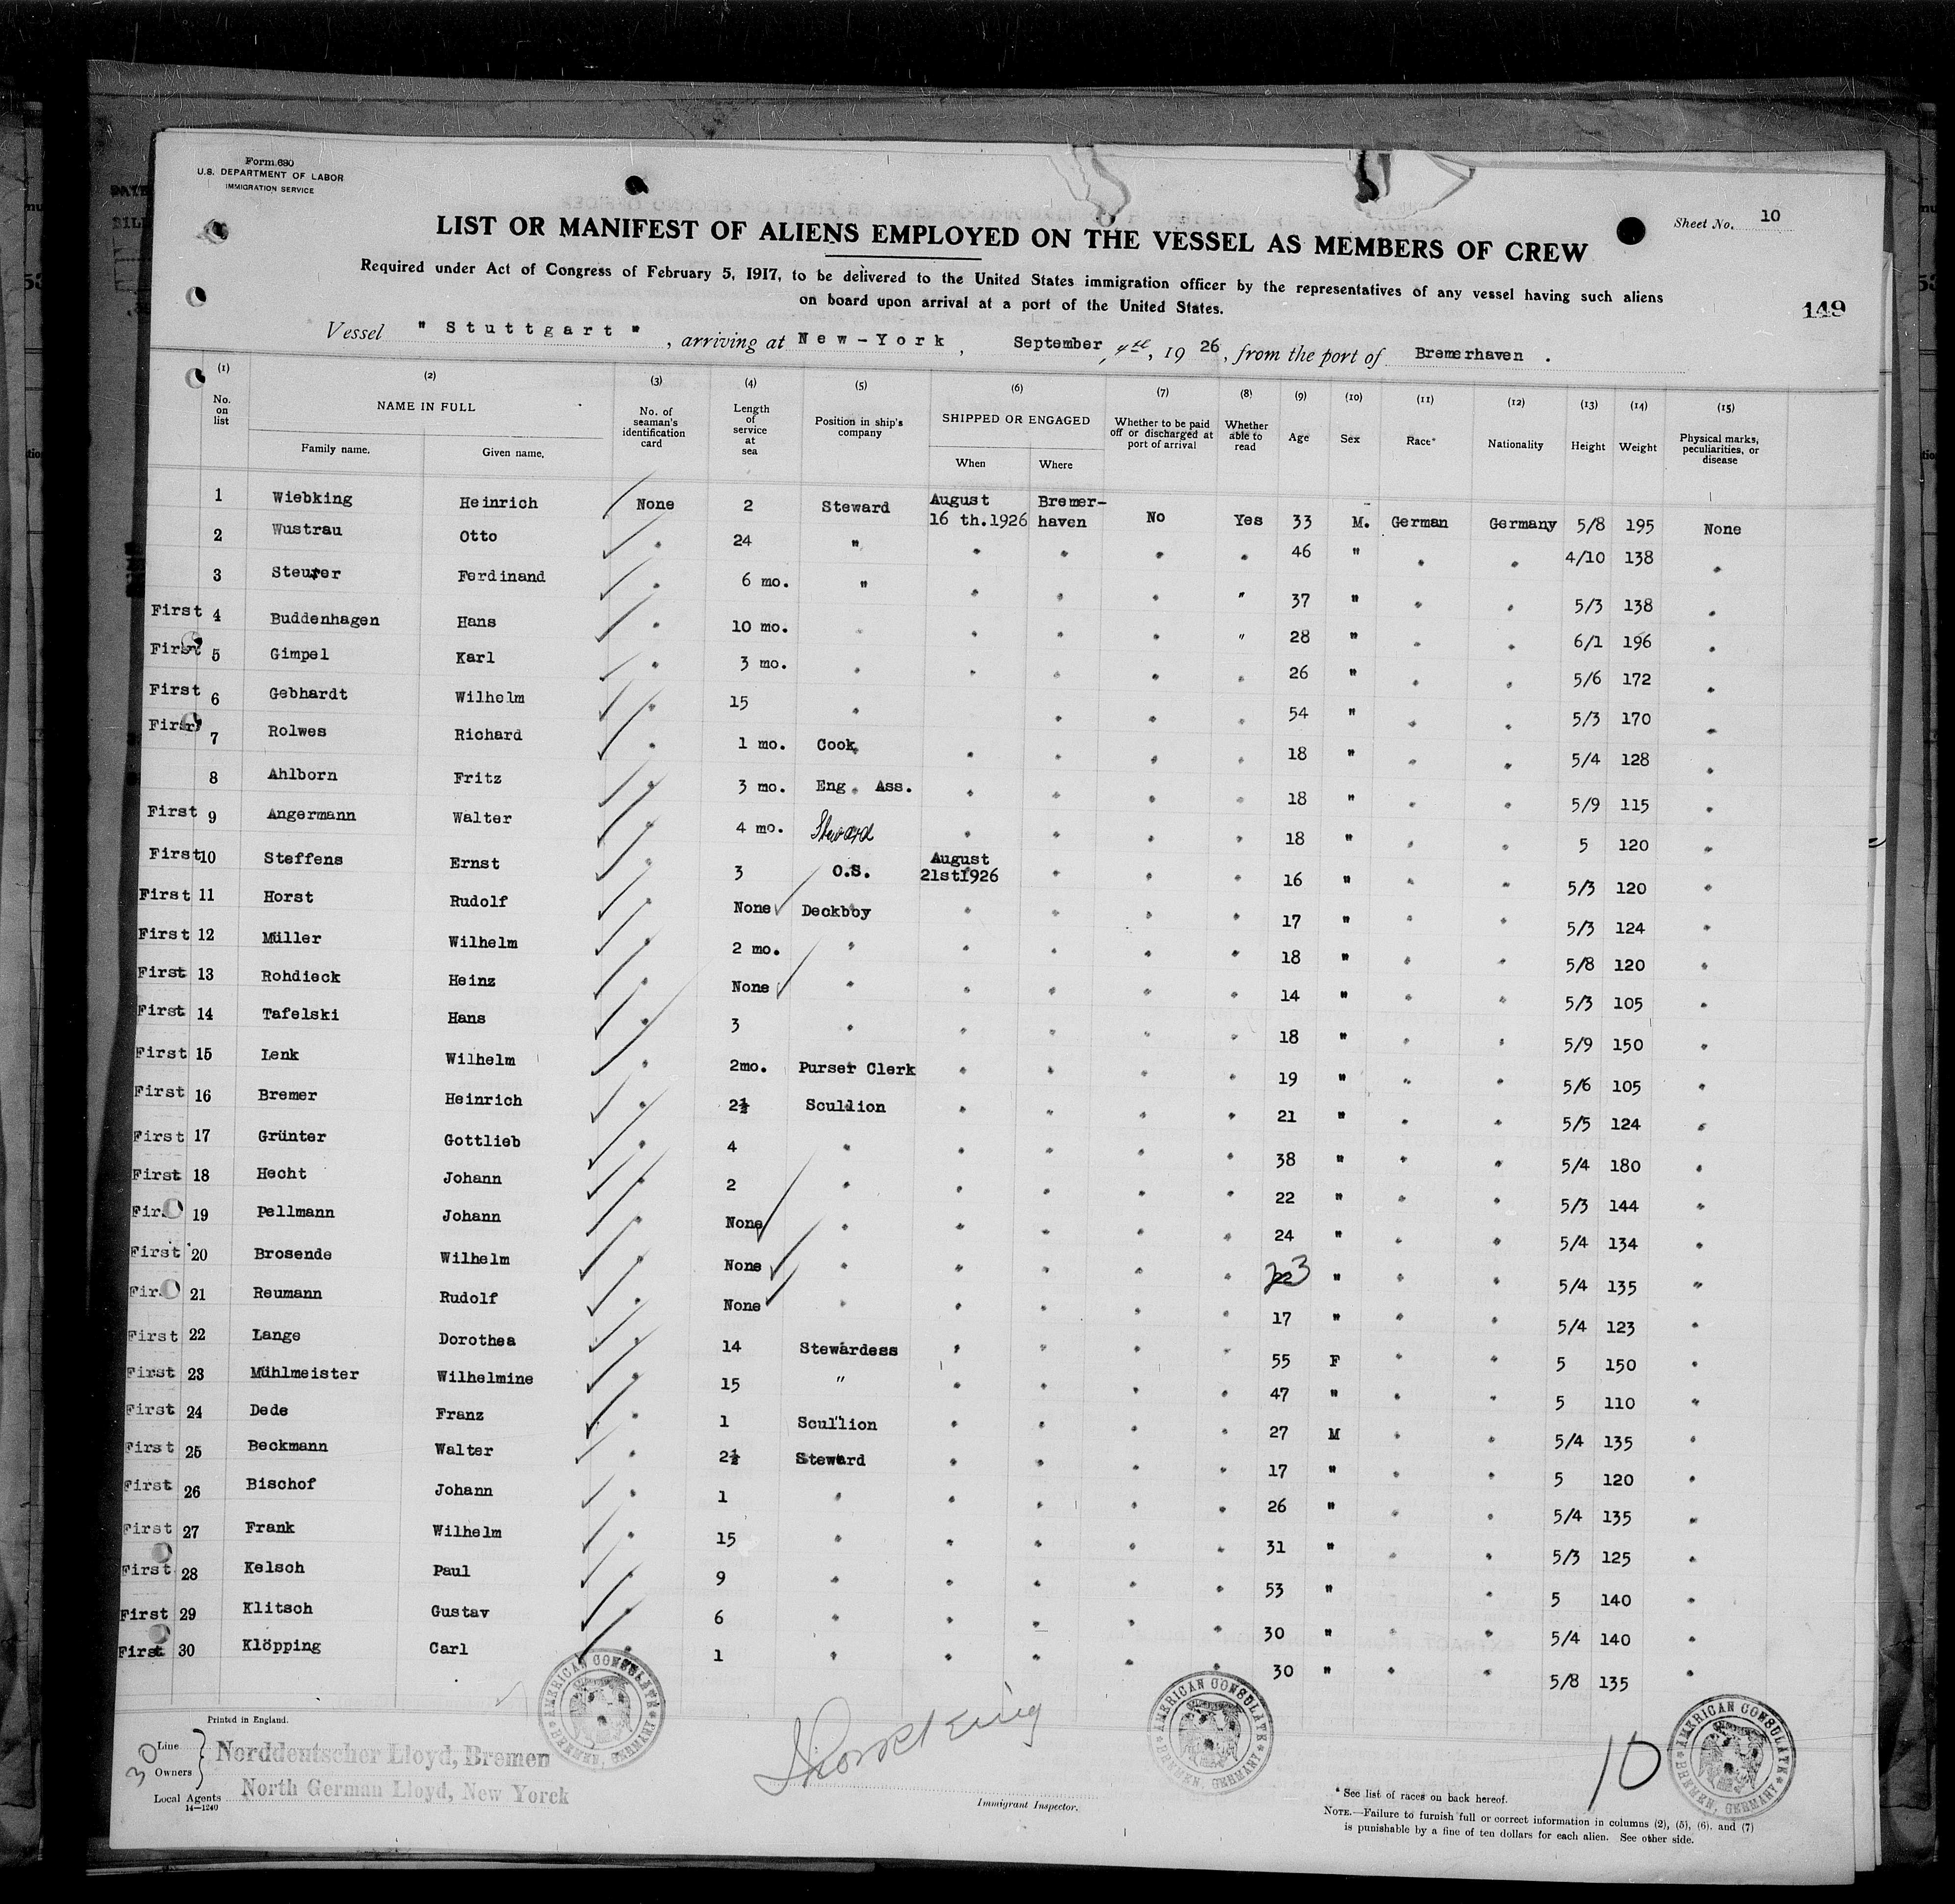 Form 680
U.S. DEPARTMENT OF LABOR
IMMIGRATION SERVICE
Sheet No. 10
LIST OR MANIFEST OF ALIENS EMPLOYED ON THE VESSEL AS MEMBERS OF CREW
Required under Act of Congress of February 5, 1917, to be delivered to the United States immigration officer by the representatives of any vessel having such aliens
on board upon arrival at a port of the United States.
149
Vessel "Stuttgart", arriving at New-York, September 4th, 1926, from the port of Bremerhaven.
(1) (2) (3) (4) (5) (6) (7) (8) (9) (10) (11) (12) (13) (14) (15)
No. on list NAME IN FULL Family name. Given name. No. of seaman's identification card Length of service at sea Position in ship's company SHIPPED OR ENGAGED When Where Whether to be paid off or discharged at port of arrival Whether able to read Age Sex Race* Nationality Height Weight Physical marks, peculiarities, or disease
1 Wiebking Heinrich None 2 Steward August 16 th.1926 Bremer-haven No Yes 33 M. German Germany 5/8 195 None
2 Wustrau Otto " 24 " " " " " 46 " " " 4/10 138 "
3 Steurer Ferdinand " 6 mo. " " " " " 37 " " " 5/3 138 "
First 4 Buddenhagen Hans " 10 mo. " " " " " 28 " " " 6/1 196 "
First 5 Gimpel Karl " 3 mo. " " " " " 26 " " " 5/6 172 "
First 6 Gebhardt Wilhelm " 15 " " " " 54 " " " 5/3 170 "
First 7 Rolwes Richard " 1 mo. Cook " " " " 18 " " " 5/4 128 "
8 Ahlborn Fritz " 3 mo. Eng. Ass. " " " " 18 " " " 5/9 115 "
First 9 Angermann Walter " 4 mo. Steward " " " " 18 " " " 5 120 "
First 10 Steffens Ernst " 3 O.S. August 21st1926 " " " 16 " " " 5/3 120 "
First 11 Horst Rudolf " None Deckboy " " " " 17 " " " 5/3 124 "
First 12 Müller Wilhelm " 2 mo. " " " " " 18 " " " 5/8 120 "
First 13 Rohdieck Heinz " None " " " " " 14 " " " 5/3 105 "
First 14 Tafelski Hans " 3 " " " " " 18 " " " 5/9 150 "
First 15 Lenk Wilhelm " 2mo. Purser Clerk " " " " 19 " " " 5/6 105 "
First 16 Bremer Heinrich " 2½ Scullion " " " " 21 " " " 5/5 124 "
First 17 Grünter Gottlieb " 4 " " " " " 38 " " " 5/4 180 "
First 18 Hecht Johann " 2 " " " " " 22 " " " 5/3 144 "
First 19 Pellmann Johann " None " " " " " 24 " " " 5/4 134 "
First 20 Brosende Wilhelm " None " " " " " 23 " " " 5/4 135 "
First 21 Reumann Rudolf " None " " " " " 17 " " " 5/4 123 "
First 22 Lange Dorothea " 14 Stewardess " " " " 55 F " " 5 150 "
First 23 Mühlmeister Wilhelmine " 15 " " " " " 47 " " " 5 110 "
First 24 Dede Franz " 1 Scullion " " " " 27 M " " 5/4 135 "
First 25 Beckmann Walter " 2½ Steward " " " " 17 " " " 5 120 "
First 26 Bischof Johann " 1 " " " " " 26 " " " 5/4 135 "
First 27 Frank Wilhelm " 15 " " " " " 31 " " " 5/3 125 "
First 28 Kelsch Paul " 9 " " " " " 53 " " 5 140 "
First 29 Klitsch Gustav " 6 " " " " " 30 " " " 5/4 140 "
First 30 Klöpping Carl " 1 " " " " " 30 " " " 5/8 135 "
Printed in England.
30
Line
Owners
Norddeutscher Lloyd, Bremen
North German Lloyd, New Yorck
Local Agents
14—1240
AMERICAN CONSULATE BREMEN, GERMANY
Immigrant Inspector.
AMERICAN CONSULATE BREMEN, GERMANY
10
AMERICAN CONSULATE BREMEN, GERMANY
* See list of races on back hereof.
NOTE.—Failure to furnish full or correct information in columns (2), (5), (6), and (7)
is punishable by a fine of ten dollars for each alien. See other side.